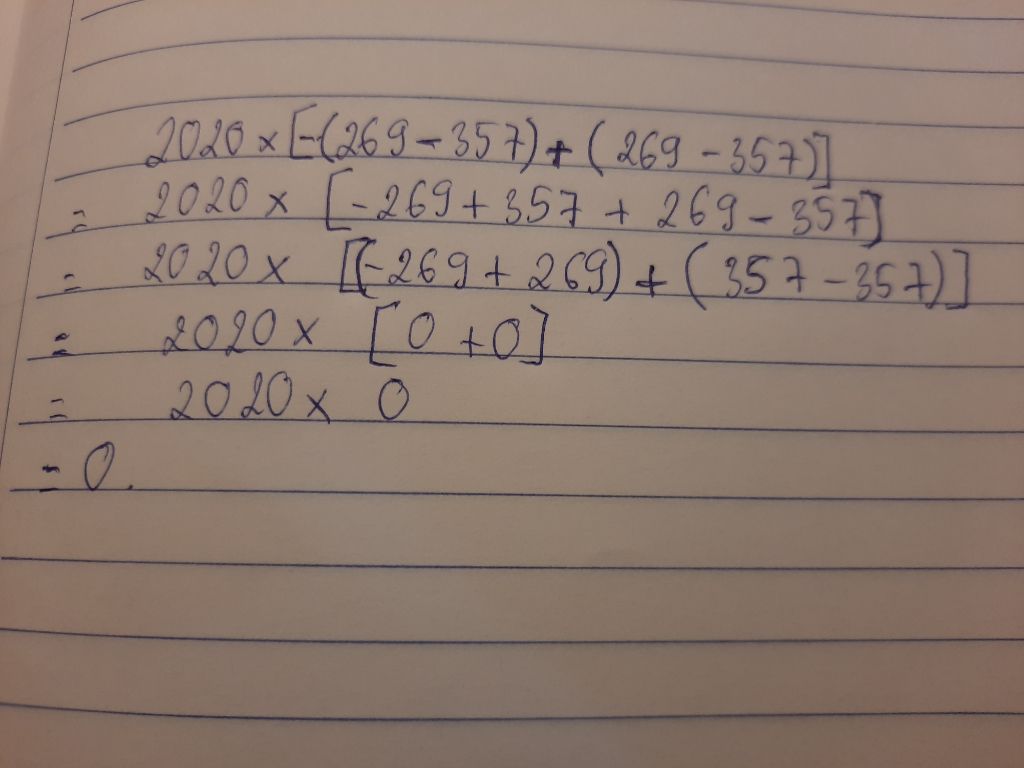 2020 × [-(269 - 357) + (269 - 357)]
= 2020 × [-269 + 357 + 269 - 357]
= 2020 × [(-269 + 269) + (357 - 357)]
= 2020 × [0 + 0]
= 2020 × 0
= 0.